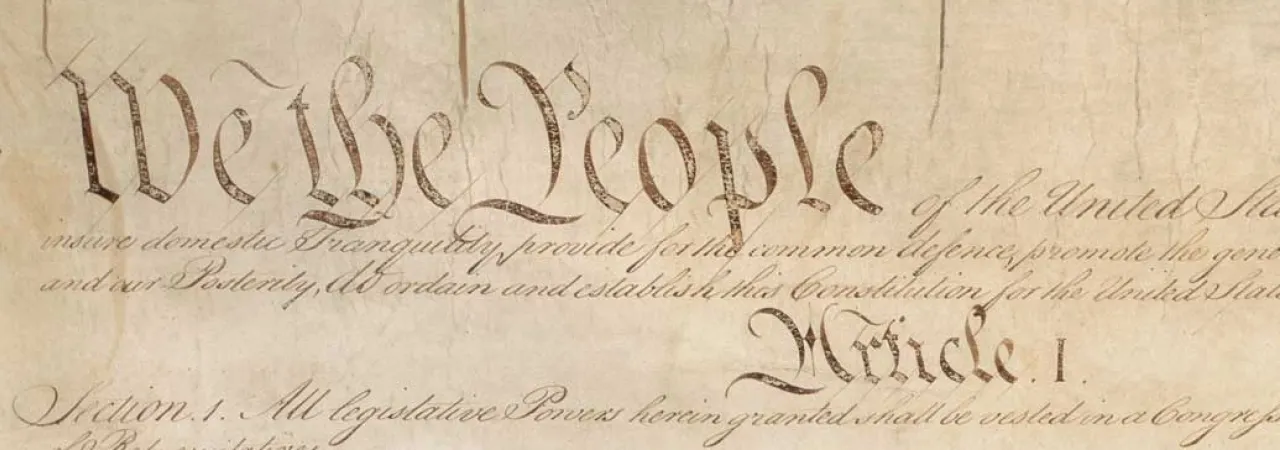 We the People of the United Sta
insure domestic Tranquility, provide for the common defence, promote the gene
and our Posterity, do ordain and establish this Constitution for the United Stat
Article. I.
Section. 1. All legislative Powers herein granted shall be vested in a Congress
of Representatives.